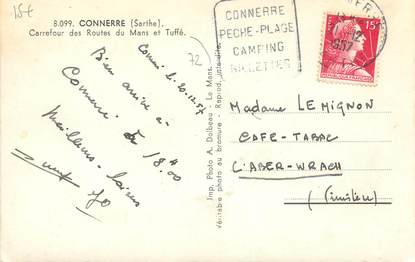 15€
8.099. CONNERRE (Sarthe).
Carrefour des Routes du Mans et Tuffé.
72
Conn. le 20.12.57
Bien arrivé à
Connerré. à
18H00
Meilleurs
Jo
Imp. Photo A. Dolbeau - Le Mans.
Véritable photo au bromure - Reprod. interdite.
CONNERRE
PECHE-PLAGE
CAMPING
RILLETTES
1957
15F
REPUBLIQUE FRANÇAISE
Madame LEMIGNON
CAFE-TABAC
L'ABER-WRACH
(Finistère)